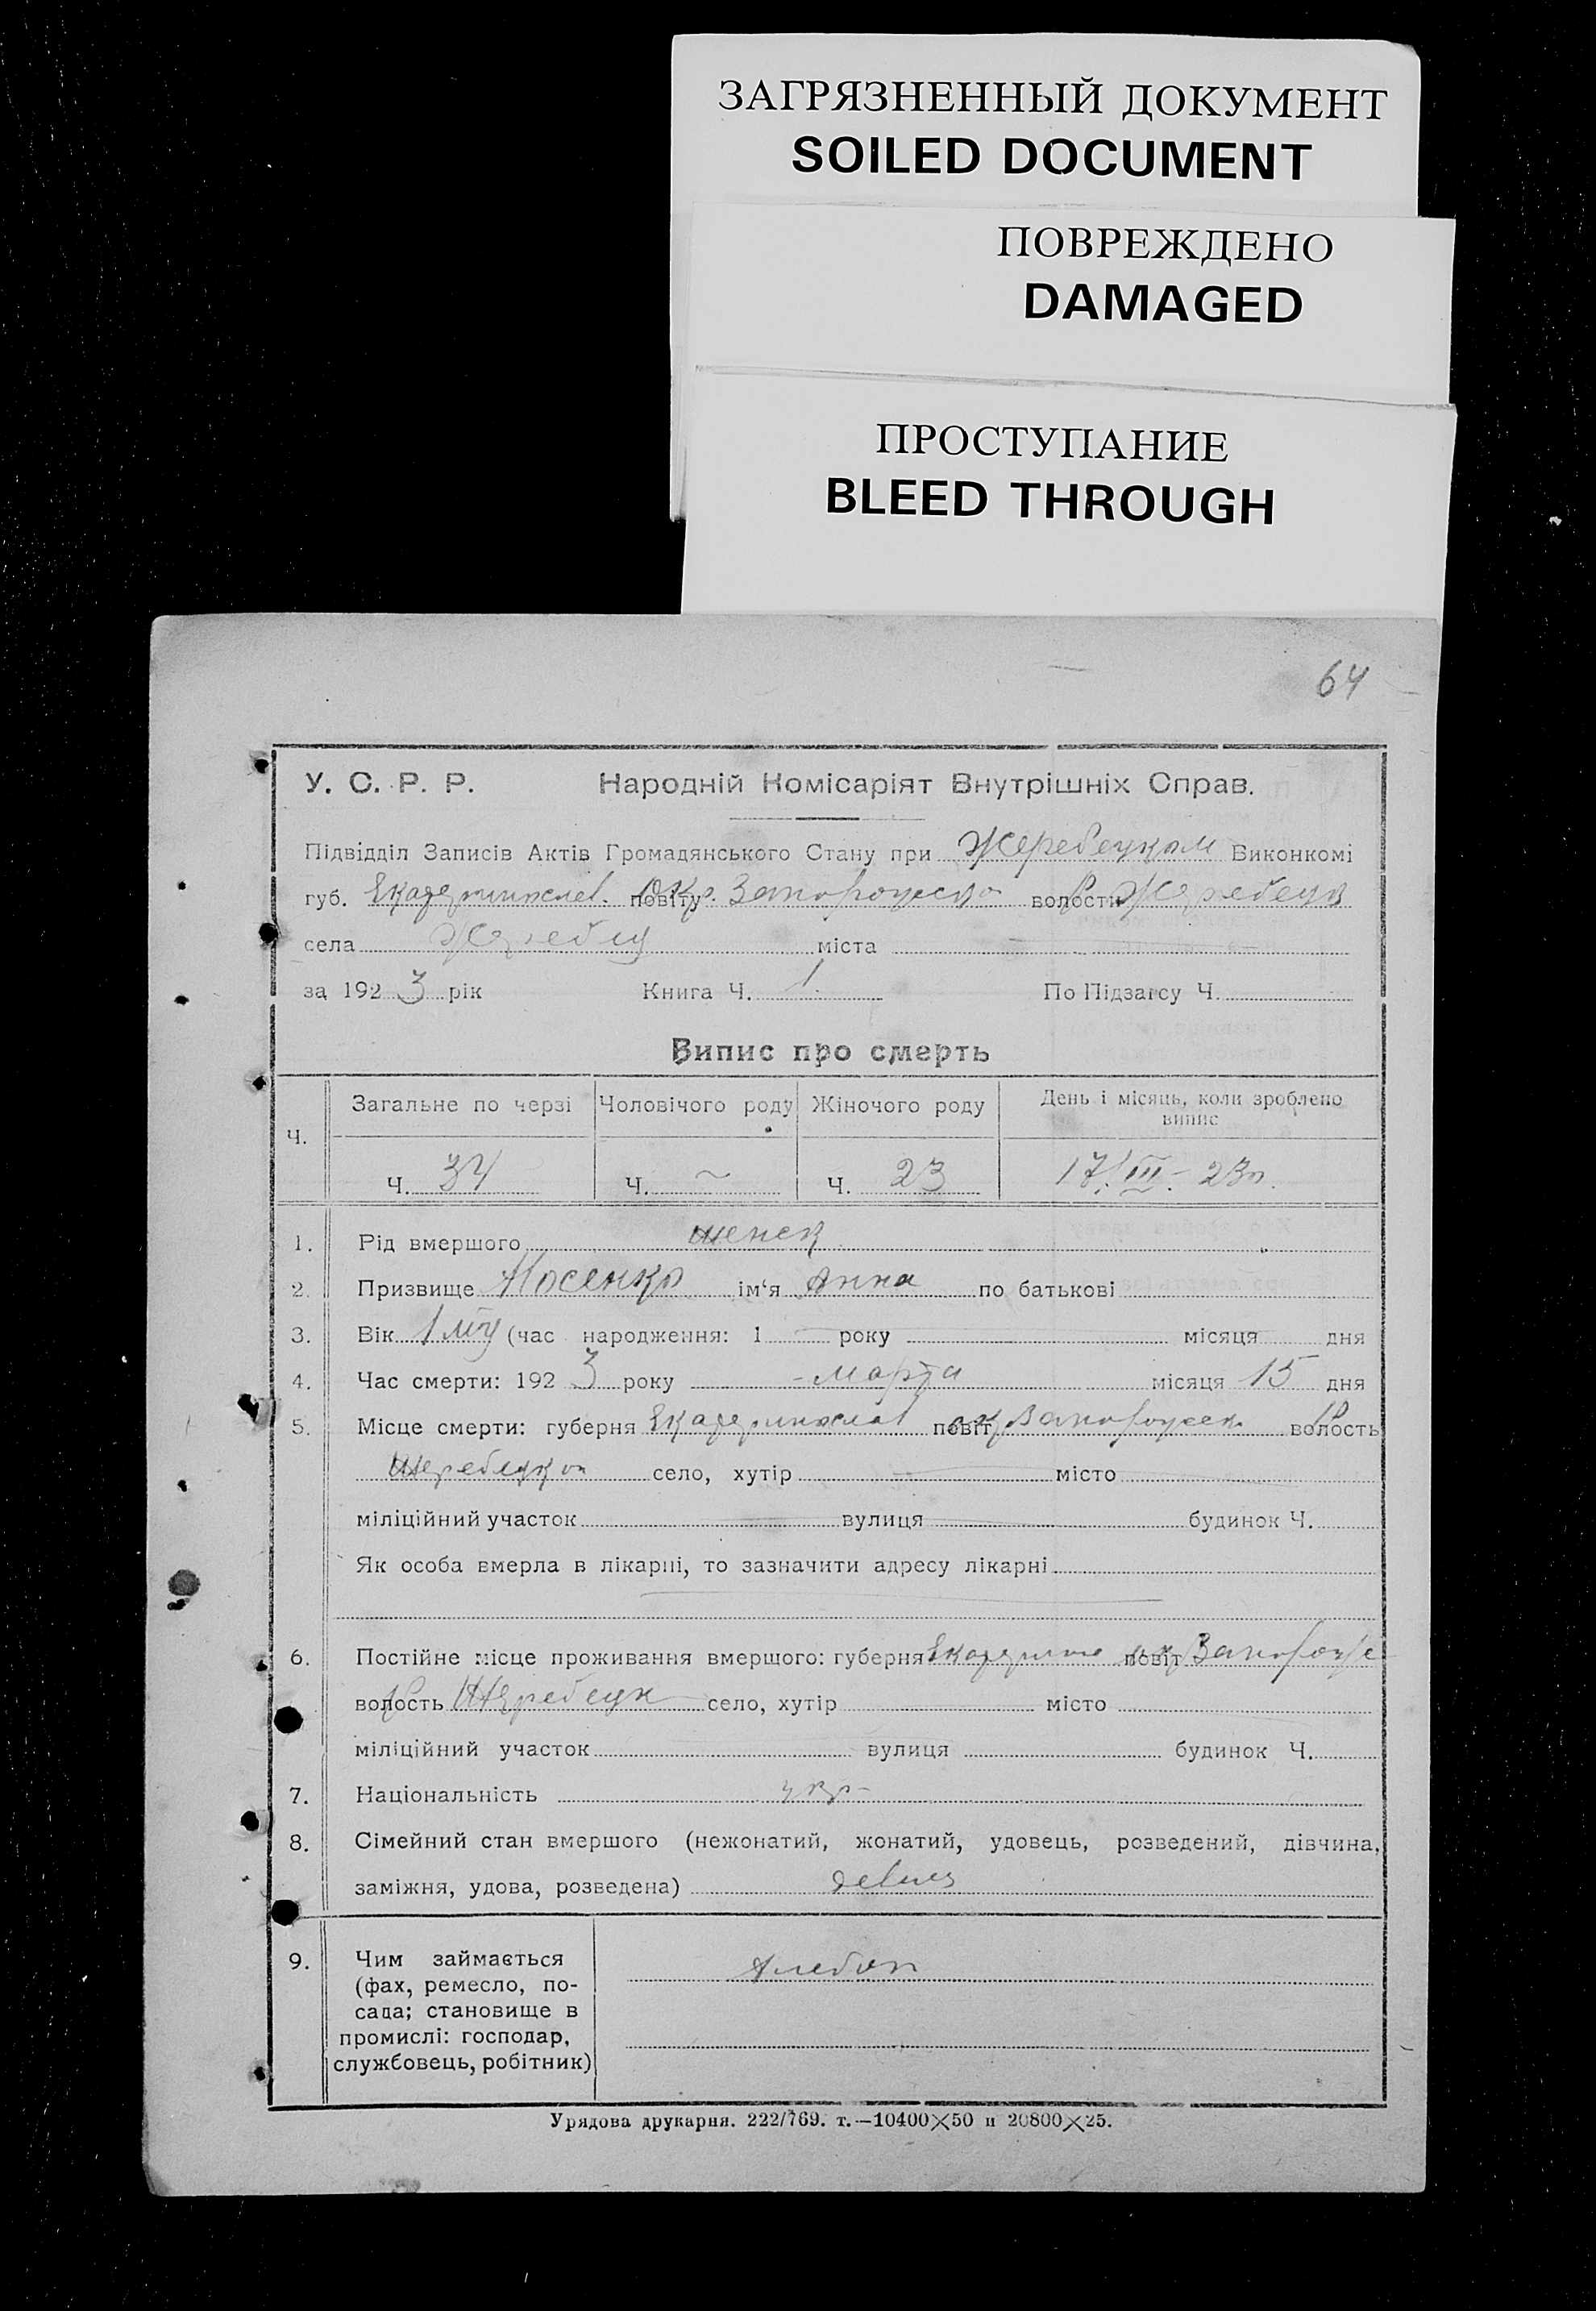 ЗАГРЯЗНЕННЫЙ ДОКУМЕНТ
SOILED DOCUMENT
ПОВРЕЖДЕНО
DAMAGED
ПРОСТУПАНИЕ
BLEED THROUGH
64
У. С. Р. Р. Народній Комісаріят Внутрішніх Справ.
Підвідділ Записів Актів Громадянського Стану при Жеребецком Виконкомі
губ. Екатеринослав. повіту окр. Запорожско волости Р Жеребецк
села Жеребец міста
за 1923 рік Книга Ч. 1. По Підзагсу Ч.
Випис про смерть
Ч. Загальне по черзі Чоловічого роду Жіночого роду День і місяць, коли зроблено випис
Ч. 34 Ч. ~ Ч. 23 17/III - 23
1. Рід вмершого женск
2. Призвище Носенко ім‘я Анна по батькові
3. Вік 1 (час народження: 1 року місяця дня
4. Час смерти: 1923 року - марта місяця 15 дня
5. Місце смерти: губерня Екатеринослав повіт ок Запорожск. волость Р
Жеребецкой село, хутір місто
міліційний участок вулиця будинок Ч.
Як особа вмерла в лікарні, то зазначити адресу лікарні
6. Постійне місце проживання вмершого: губерня Екатерино повіт ок Запорож
волость Р Жеребецк село, хутір місто
міліційний участок вулиця будинок Ч.
7. Національність укр-
8. Сімейний стан вмершого (нежонатий, жонатий, удовець, розведений, дівчина,
заміжня, удова, розведена) девиц
9. Чим займається
(фах, ремесло, по-
сада; становище в
промислі: господар,
службовець, робітник)
Урядова друкарня. 222/769. т.—10400×50 и 20800×25.